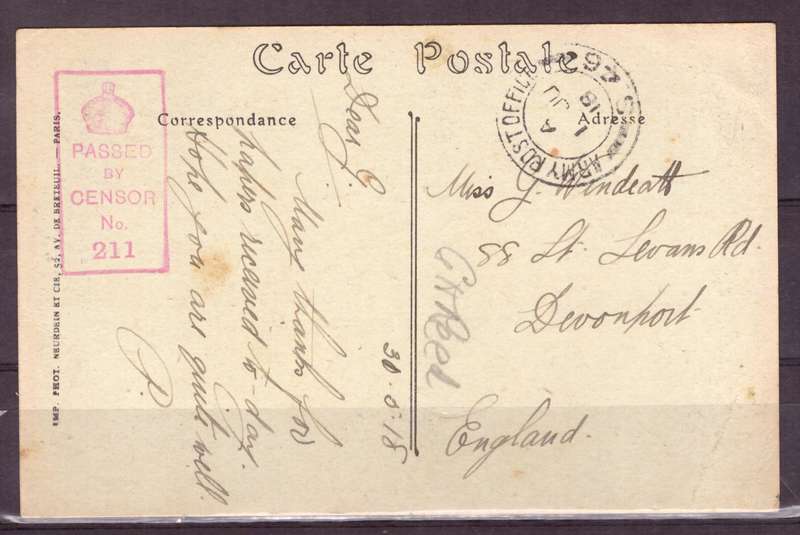 Carte Postale
Correspondance
Adresse
PASSED
BY
CENSOR
No.
211
IMP. PHOT. NEURDEIN ET CIE, 52, AV. DE BRETEUIL. — PARIS.
ARMY POST OFFICE S.26
A
1 JU
18
Dear
Many thanks for
papers received to-day.
Hope you are quite well.
P.
30.5.18
Miss G. Windeatt
88 St. Levans Rd.
Devonport
England.